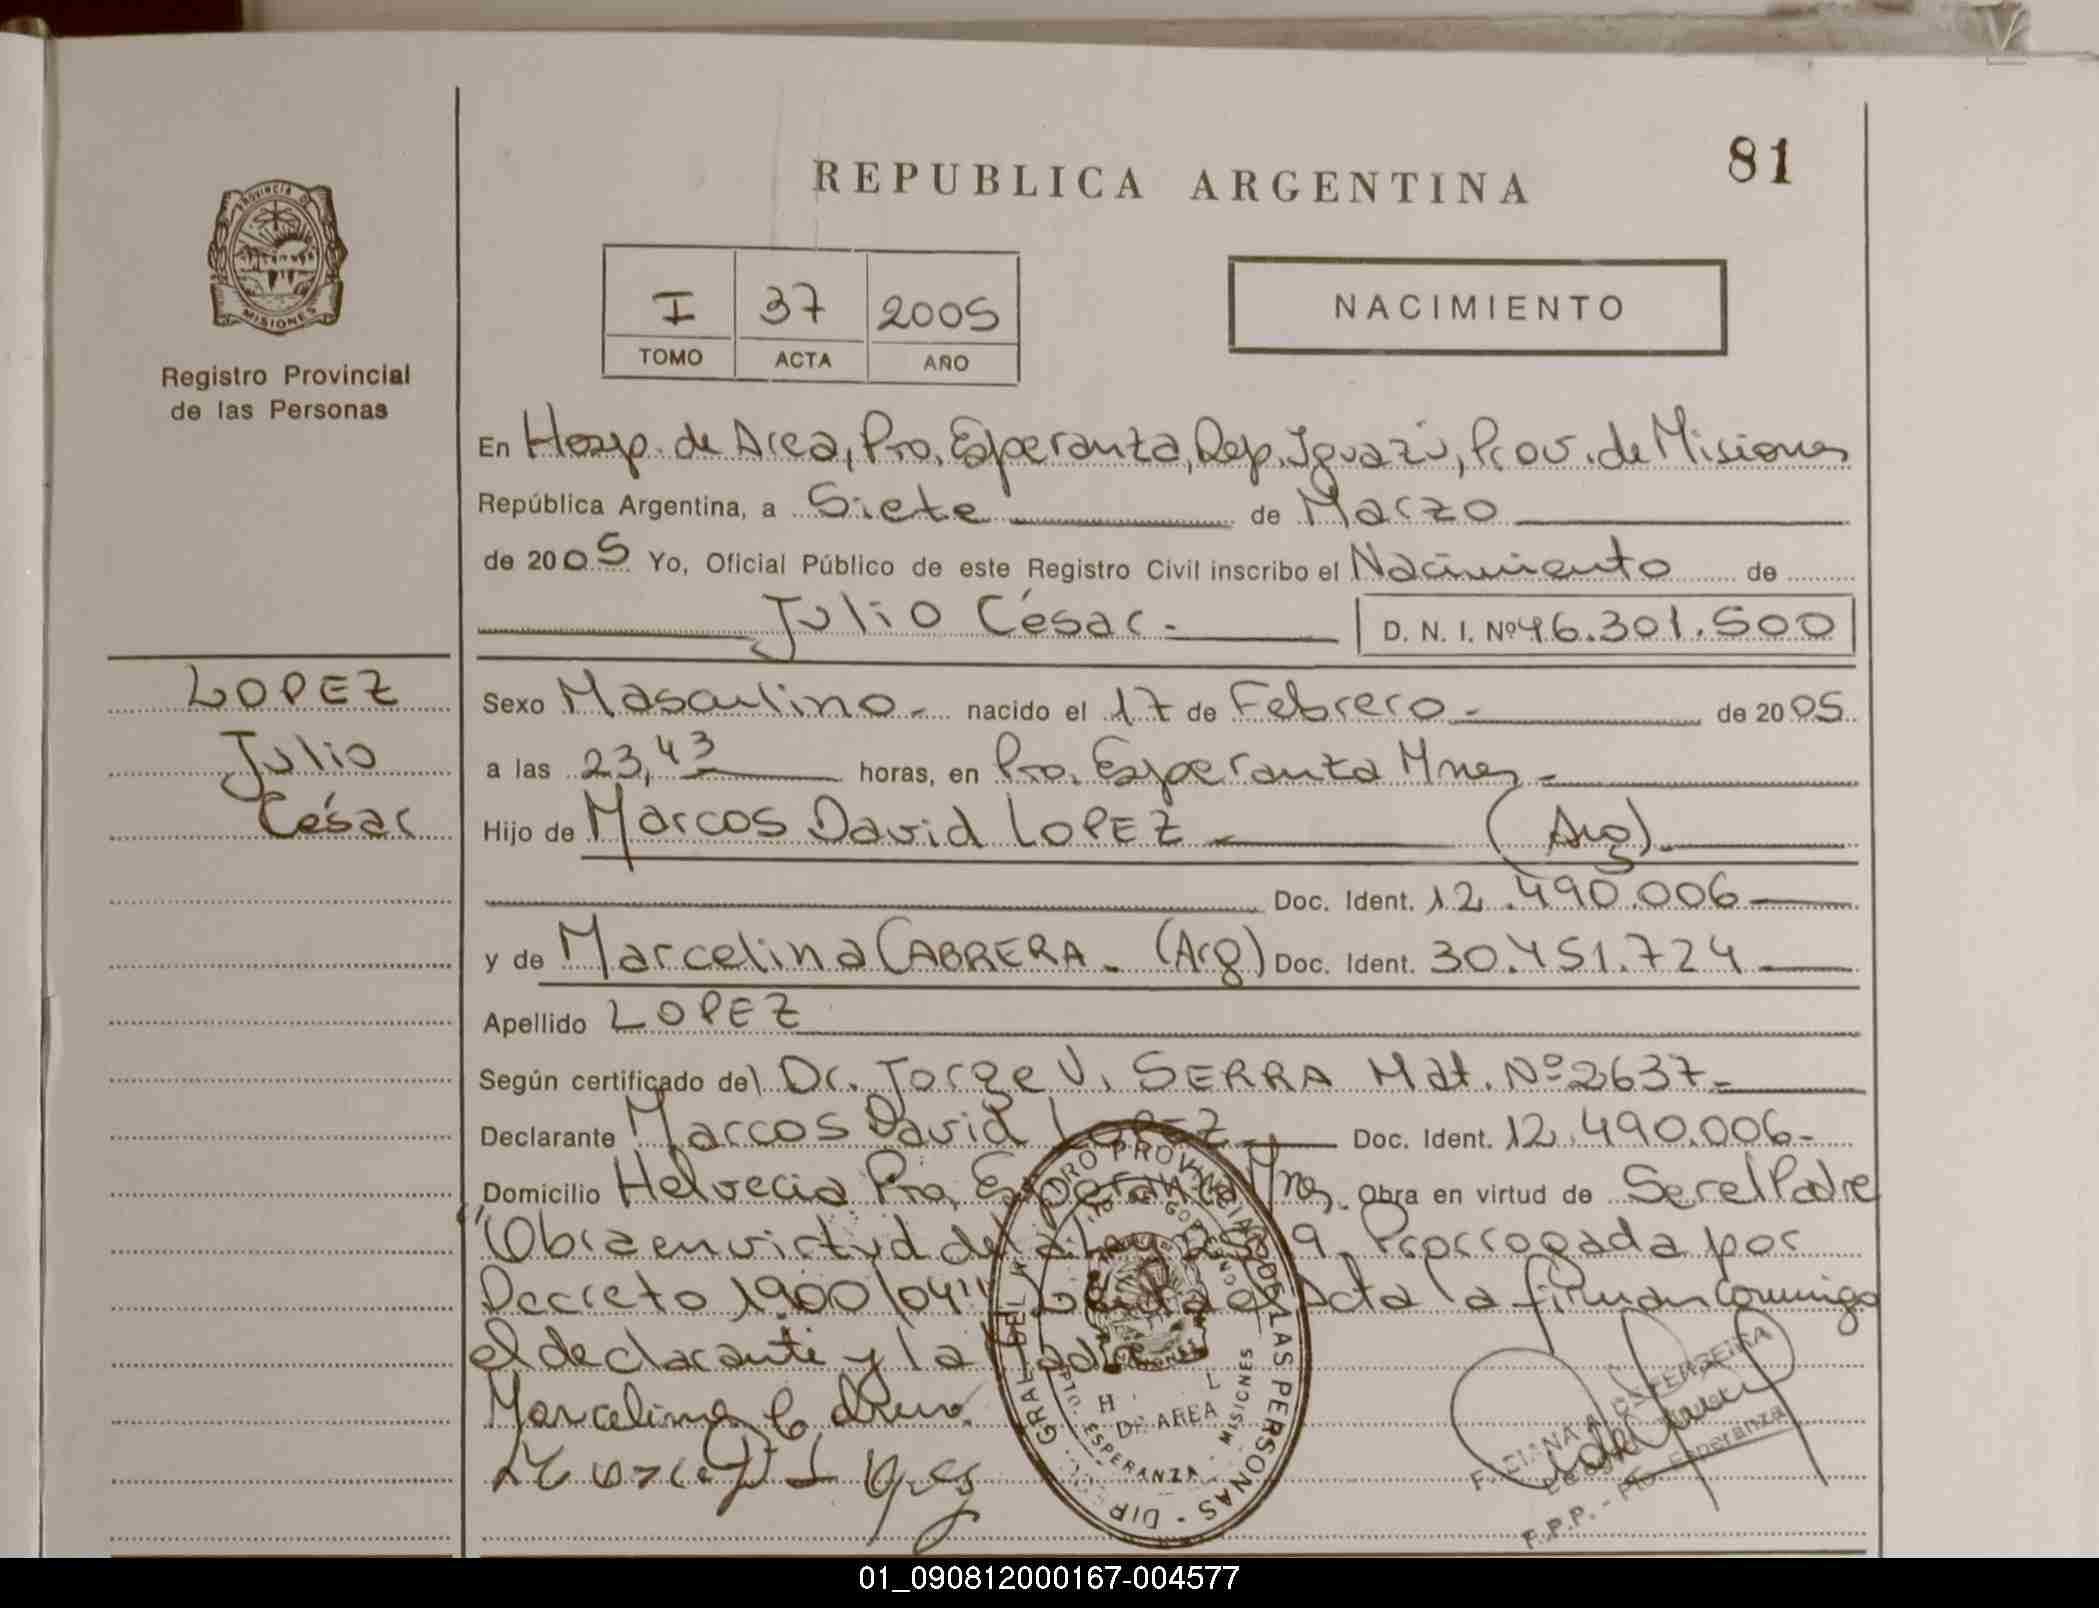 81
REPUBLICA ARGENTINA
PROVINCIA DE
MISIONES
Registro Provincial
de las Personas
I 37 2005
TOMO ACTA AÑO
NACIMIENTO
En Hosp. de Area, Pto. Esperanza, Dep. Iguazú, Prov. de Misiones
República Argentina, a Siete de Marzo
de 2005 Yo, Oficial Público de este Registro Civil inscribo el Nacimiento de
Julio César.- D. N. I. Nº 46.301.500
LOPEZ
Julio
César
Sexo Masculino.- nacido el 17 de Febrero.- de 2005
a las 23,43 horas, en Pto. Esperanza Mnes.-
Hijo de Marcos David LOPEZ.- (Arg).-
Doc. Ident. 12.490.006
y de Marcelina CABRERA.- (Arg) Doc. Ident. 30.451.724
Apellido LOPEZ
Según certificado del Dr. Jorge V. SERRA Mat. Nº 2637.-
Declarante Marcos David LOPEZ.- Doc. Ident. 12.490.006-
Domicilio Helvecia Pto. Esperanza Mnes. Obra en virtud de Ser el Padre
"Obra en virtud de la Ley 9 Prorrogada por
Decreto 1900/04" Leida el Acta la firman conmigo
el declarante y la Madre
Marcelina
DIR. GRAL. DEL REGISTRO PROVINCIAL DE LAS PERSONAS
DE AREA
ESPERANZA - MISIONES
F.P.P. - Pto. Esperanza
01_090812000167-004577